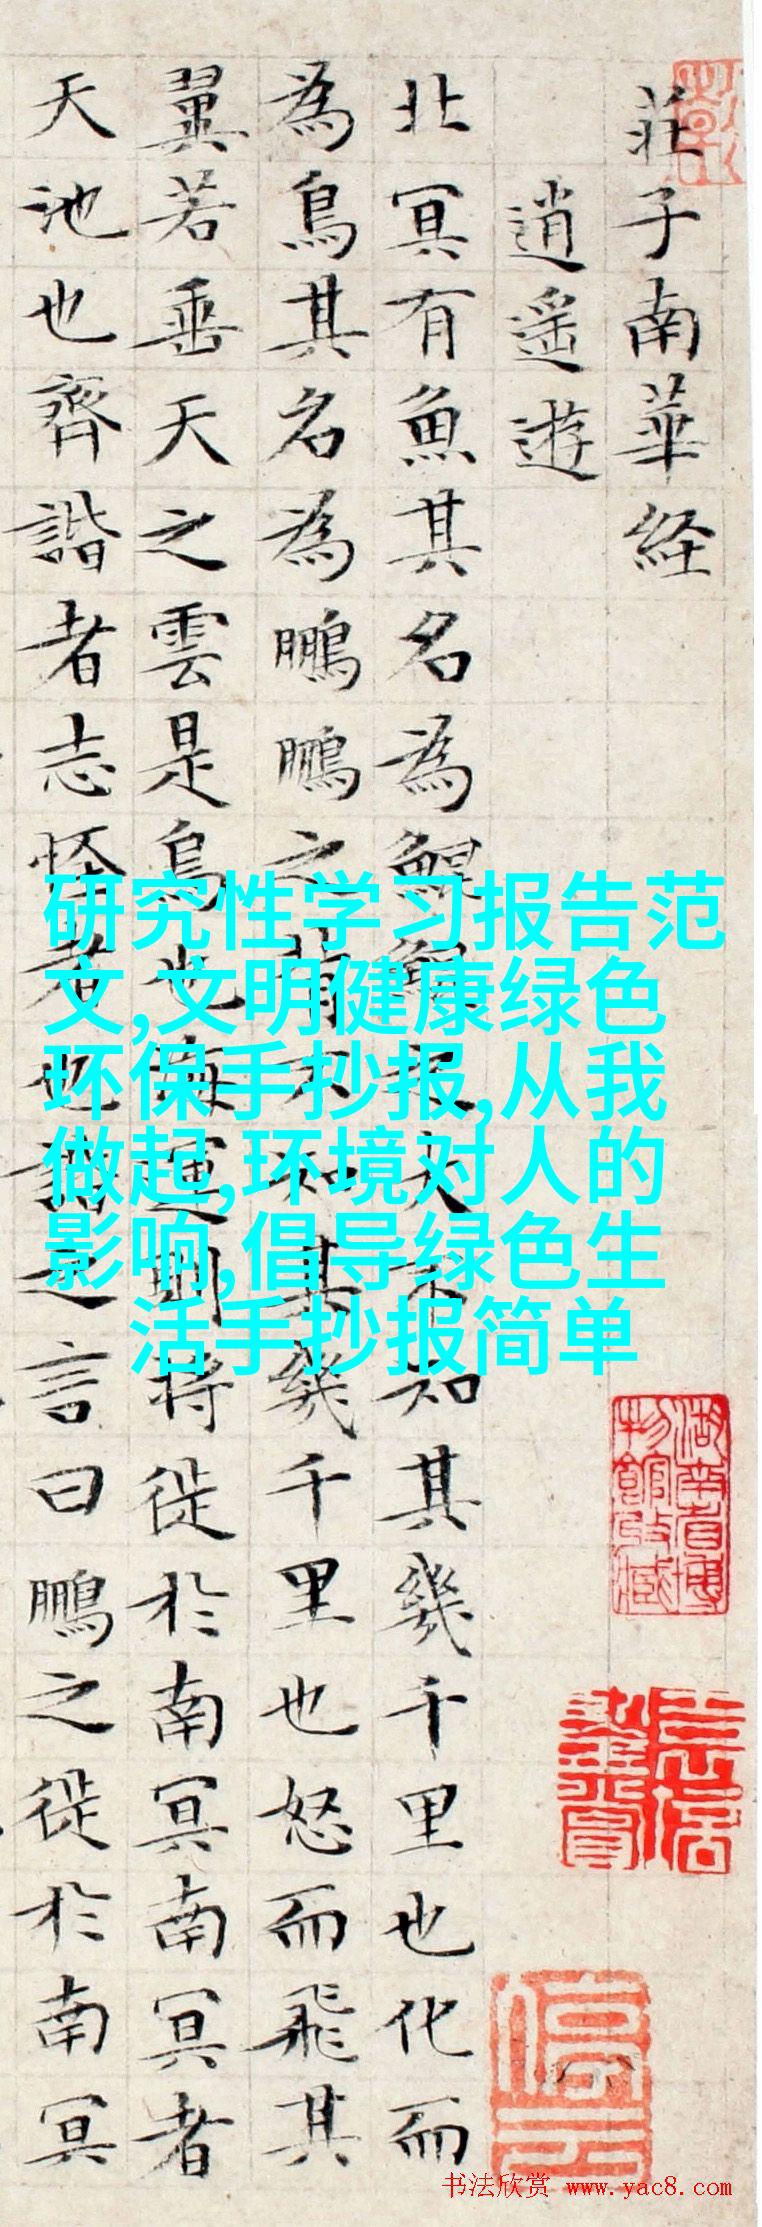 莊子南華経
逍遥遊
北冥有魚其名為鯤鯤之大不知其幾千里也化而
為鳥其名為鵬鵬之背不知其幾千里也怒而飛其
翼若垂天之雲是鳥也海運則将徙於南冥南冥者
天池也齊諧者志怪者也諧之言曰鵬之徙於南冥
研究性学习报告范
文,文明健康绿色
环保手抄报,从我
做起,环境对人的
影响,倡导绿色生
活手抄报简单
湖南省博
物館收藏
书法欣赏 www.yac8.com